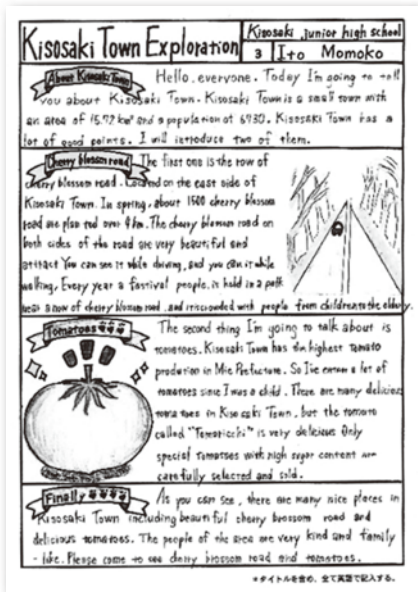 Kisosaki Town Exploration
Kisosaki Junior high school
3 Ito Momoko
About Kisosaki Town
Hello, everyone. Today I'm going to tell
you about Kisosaki Town. Kisosaki Town is a small town with
an area of 15.72 km² and a population of 6730. Kisosaki Town has a
lot of good points. I will introduce two of them.
Cherry blossom road
The first one is the row of
cherry blossom road. Located on the east side of
Kisosaki Town. In spring, about 1500 cherry blossom
road are planted over 4km. The cherry blossom road on
both sides of the road are very beautiful and
attract You can see it while driving, and you can it while
walking. Every year a festival people, is held in a park
near a row of cherry blossom road, and it is crowded with people from children to the elderly.
Tomatoes
The second thing I'm going to talk about is
tomatoes. Kisosaki Town has the highest tamato
production in Mie Prefecture. So I've eaten a lot of
tomatoes since I was a child. There are many delicious
tomatoes in Kisosaki Town, but the tomato
called "Tomaricchi" is very delicious Only
special tomatoes with high sugar content are
carefully selected and sold.
Finally
As you can see, there are many nice places in
Kisosaki Town including beautiful cherry brossom road and
delicious tomatoes. The people of the area are very kind and family
-like. Please come to see cherry brossom road and tomatoes.
*タイトルを含め、全て英語で記入する。